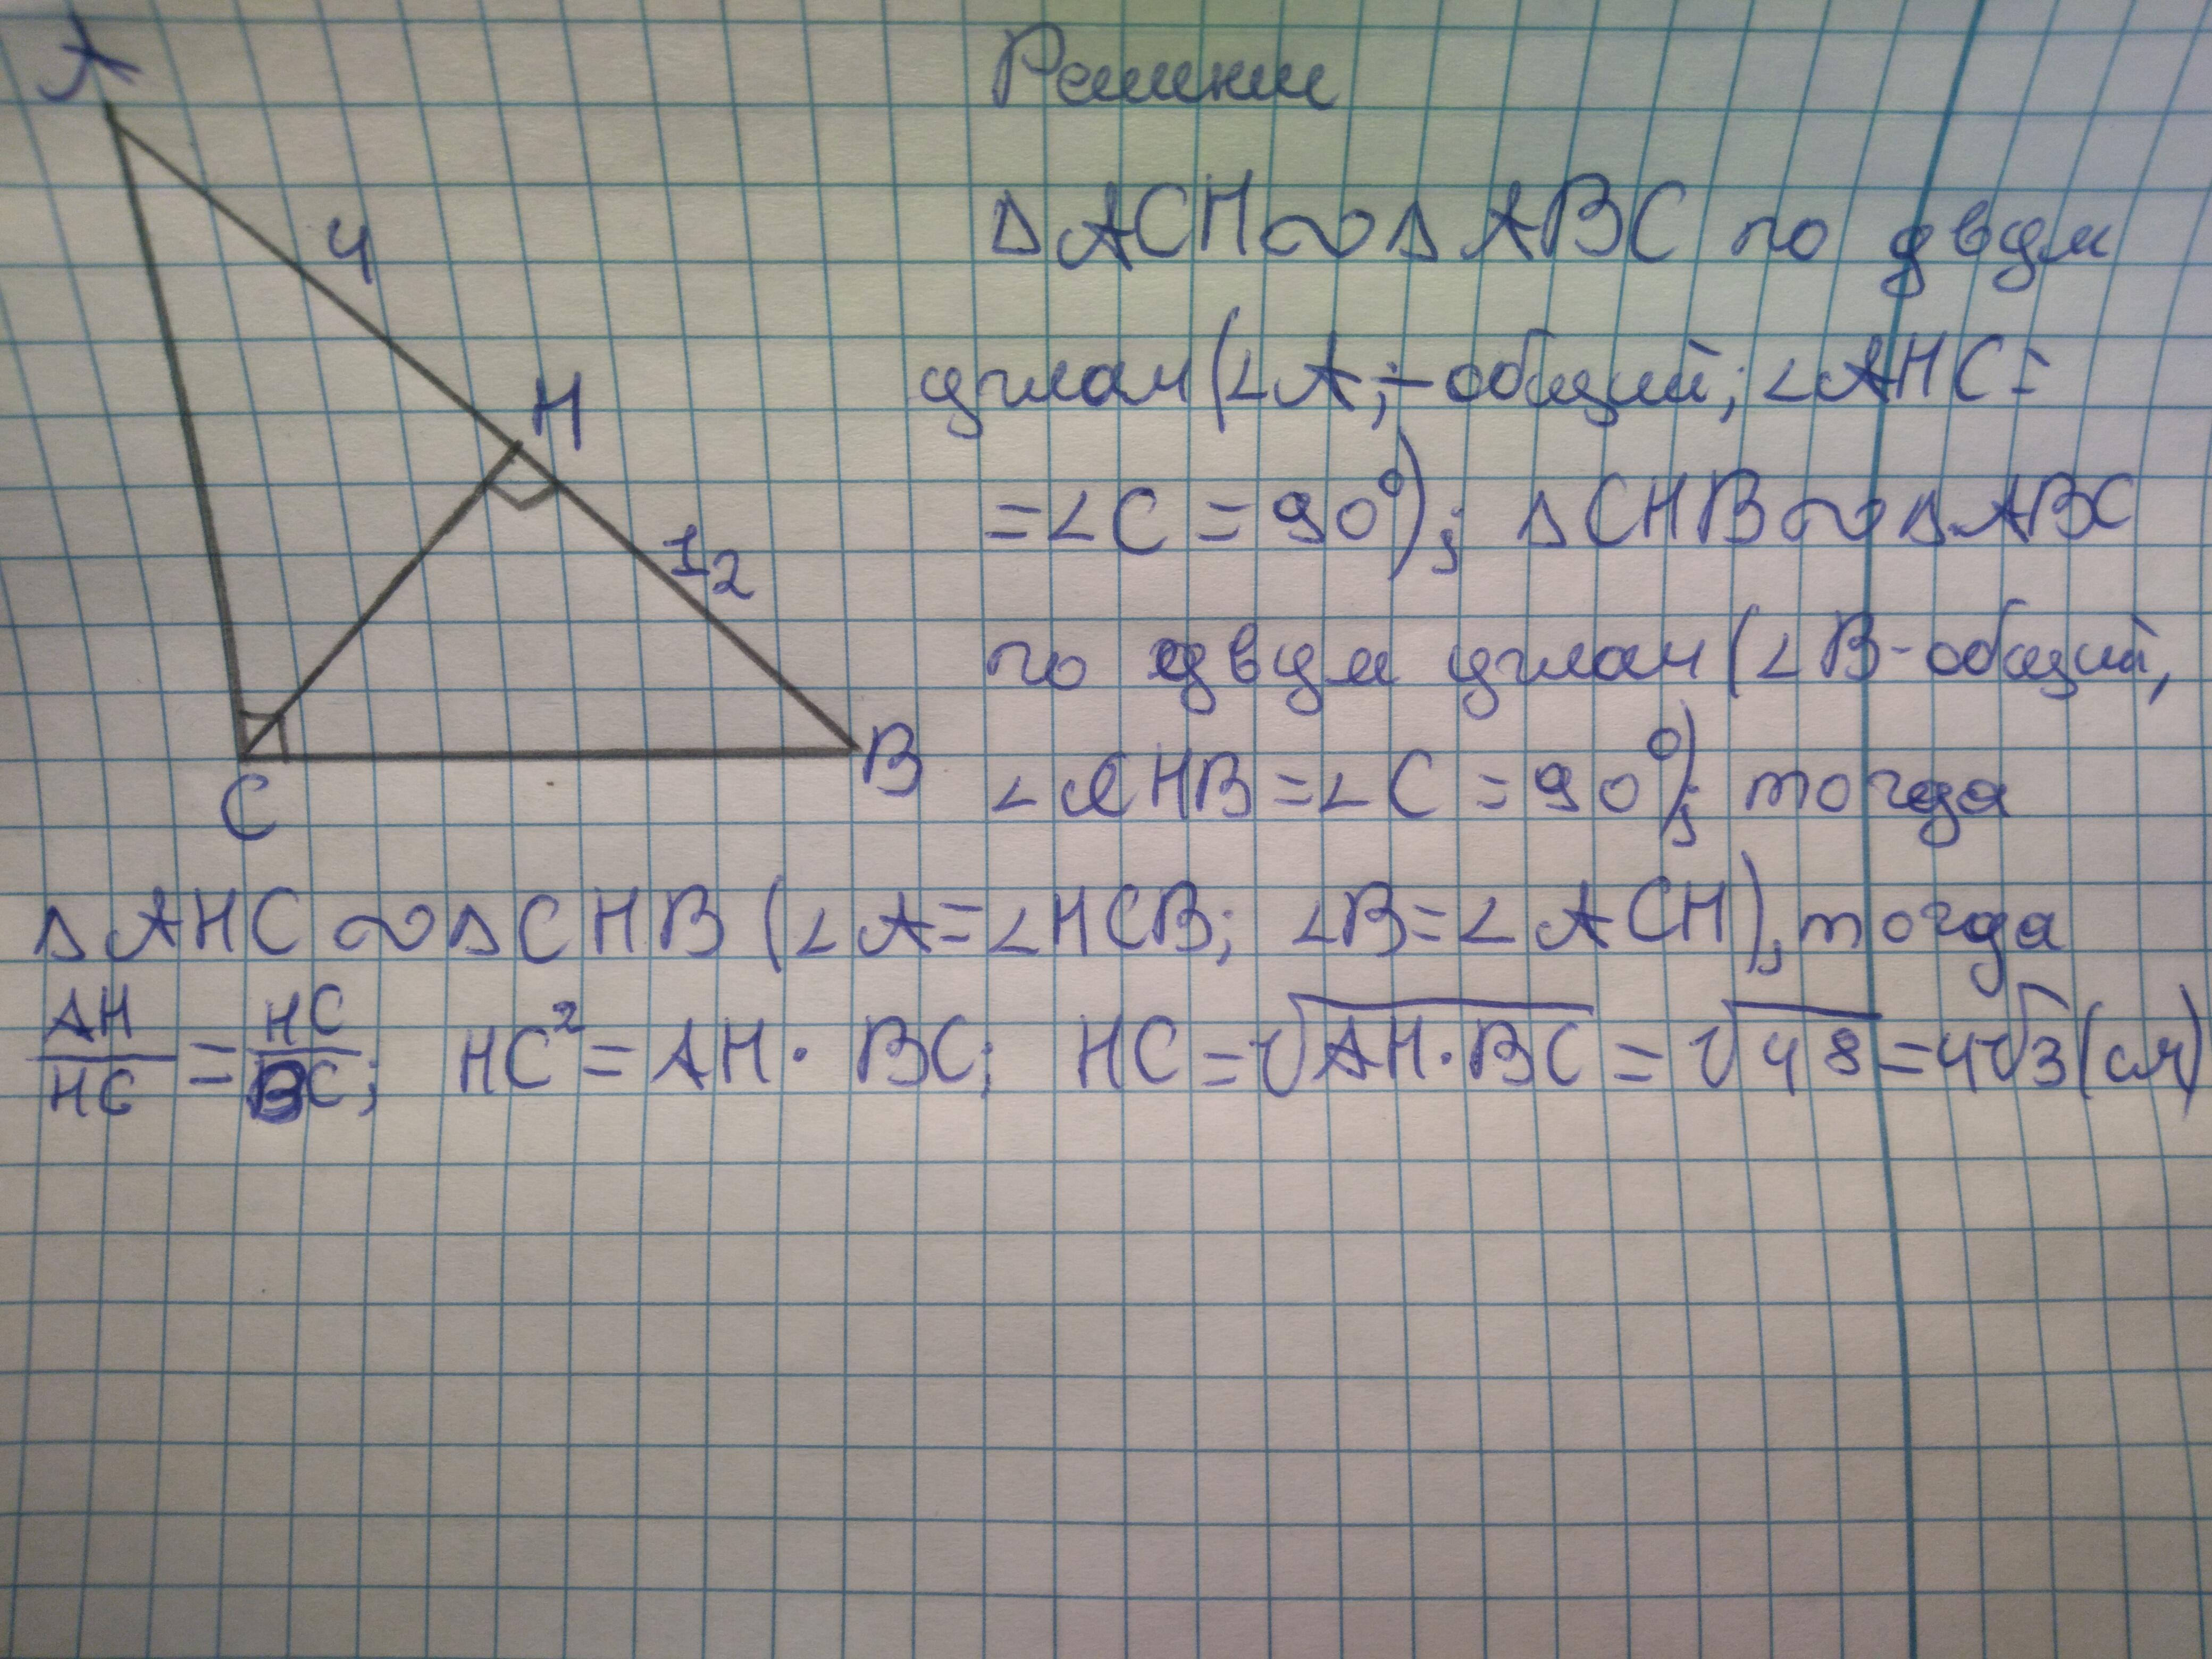 Решение
А
4
H
12
C
B
Δ ACH ∾ Δ ABC по двум
углам (∠A; - общий; ∠AHC =
= ∠C = 90°); Δ CHB ∾ Δ ABC
по двум углам (∠B - общий,
∠CHB = ∠C = 90°); тогда
Δ AHC ∾ Δ CHB (∠A = ∠HCB; ∠B = ∠ACH), тогда
AH/HC = HC/BC; HC² = AH · BC; HC = √AH·BC = √48 = 4√3 (см)